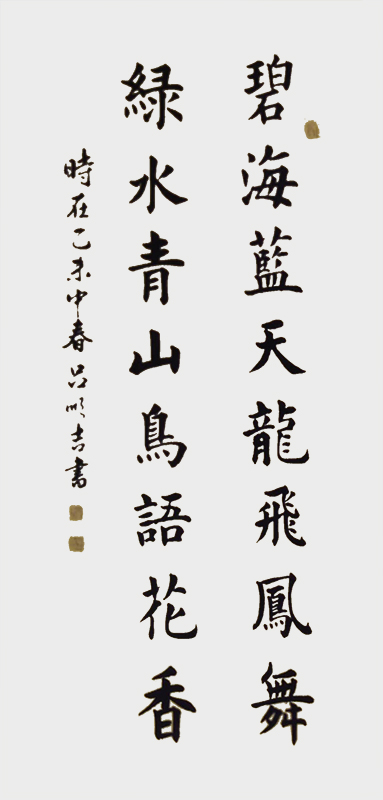 碧海藍天龍飛鳳舞
綠水青山鳥語花香
時在乙未中春呂順吉書